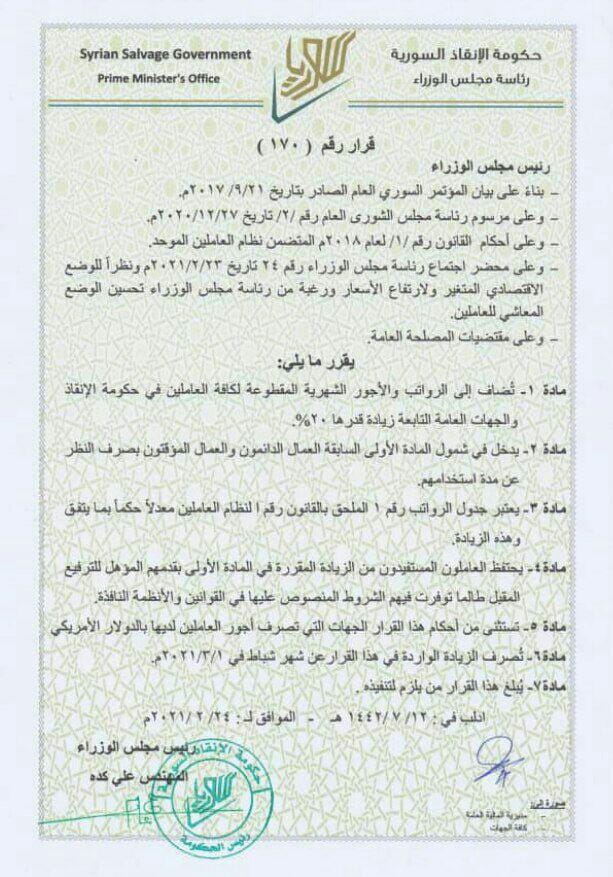 Syrian Salvage Government
Prime Minister's Office
حكومة الإنقاذ السورية
رئاسة مجلس الوزراء
قرار رقم ( ١٧٠ )
رئيس مجلس الوزراء
- بناءً على بيان المؤتمر السوري العام الصادر بتاريخ ٢٠١٧/٩/٢١م.
- وعلى مرسوم رئاسة مجلس الشورى العام رقم /٢/ تاريخ ٢٠٢٠/١٢/٢٧م.
- وعلى أحكام القانون رقم /١/ لعام ٢٠١٨م المتضمن نظام العاملين الموحد.
- وعلى محضر اجتماع رئاسة مجلس الوزراء رقم ٢٤ تاريخ ٢٠٢١/٢/٢٣م ونظراً للوضع
الاقتصادي المتغير ولارتفاع الأسعار ورغبة من رئاسة مجلس الوزراء تحسين الوضع
المعاشي للعاملين.
- وعلى مقتضيات المصلحة العامة.
يقرر ما يلي:
مادة ١- تُضاف إلى الرواتب والأجور الشهرية المقطوعة لكافة العاملين في حكومة الإنقاذ
والجهات العامة التابعة زيادة قدرها ٢٠%.
مادة ٢- يدخل في شمول المادة الأولى السابقة العمال الدائمون والعمال المؤقتون بصرف النظر
عن مدة استخدامهم.
مادة ٣- يعتبر جدول الرواتب رقم ١ الملحق بالقانون رقم ١ لنظام العاملين معدلاً حكماً بما يتفق
وهذه الزيادة.
مادة٤- يحتفظ العاملون المستفيدون من الزيادة المقررة في المادة الأولى بقدمهم المؤهل للترفيع
المقبل طالما توفرت فيهم الشروط المنصوص عليها في القوانين والأنظمة النافذة.
مادة ٥- تستثنى من أحكام هذا القرار الجهات التي تصرف أجور العاملين لديها بالدولار الأمريكي
مادة٦- تُصرف الزيادة الواردة في هذا القرار عن شهر شباط في ٢٠٢١/٣/١م.
مادة٧- يُبلغ هذا القرار من يلزم لتنفيذه .
ادلب في : ١٢/ ٧/ ١٤٤٢ هـ - الموافق لـ : ٢٤/ ٢/ ٢٠٢١م
رئيس مجلس الوزراء
المهندس علي كده
حكومة الإنقاذ السورية
رئيس الحكومة
صورة إلى:
- مديرية المالية العامة
- كافة الجهات